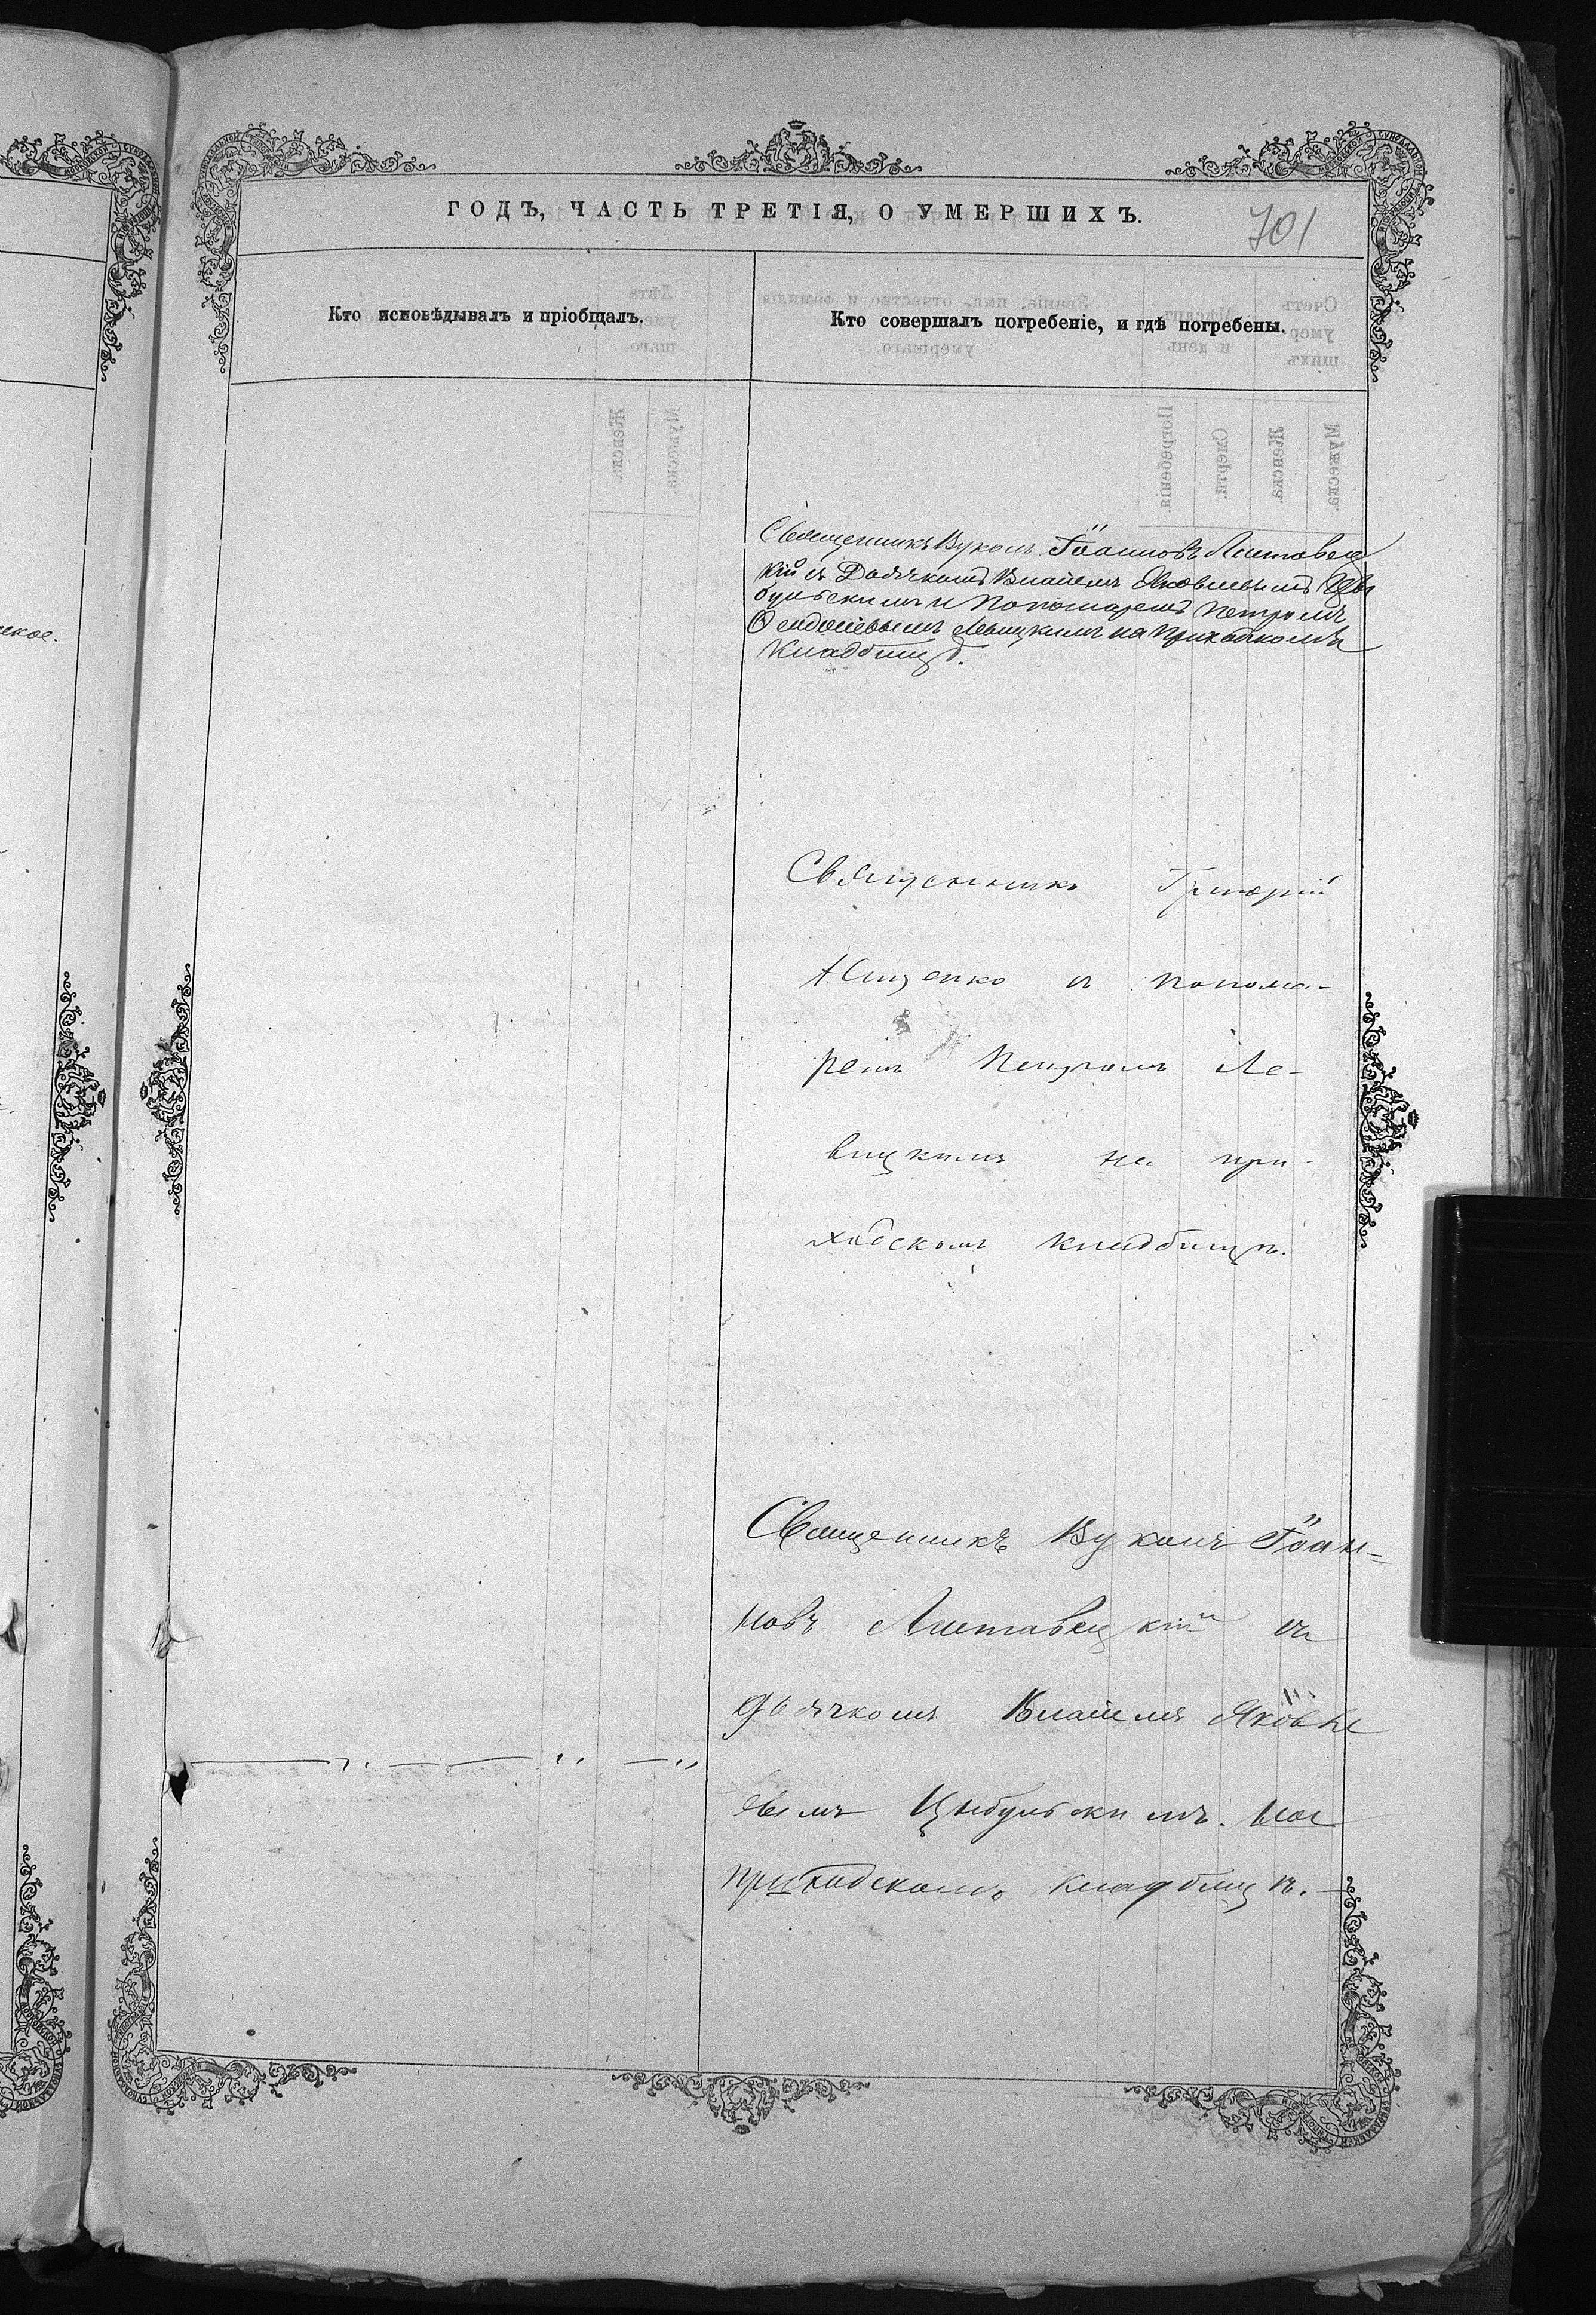 ГОДЪ, ЧАСТЬ ТРЕТІЯ, О УМЕРШИХЪ.
701
Кто исповѣдывалъ и пріобщалъ.
Кто совершалъ погребеніе, и гдѣ погребены.
Священникъ Вуколъ Іоанновъ Листовец
кій съ Дьячкомъ Власіемъ Яковлевымъ Цы
бульскимъ и Пономаремъ Петромъ
Левицкимъ на Приходскомъ
Кладбищѣ.
Священникъ Григорій
Ищенко и понома-
ремъ Петромъ Ле-
вицкимъ на при-
ходскомъ кладбищѣ.
Священникъ Вуколъ Іоан-
новъ Листовецкій съ
дьячкомъ Власіемъ Яковл
евымъ Цыбульскимъ. на
приходскомъ кладбищѣ.